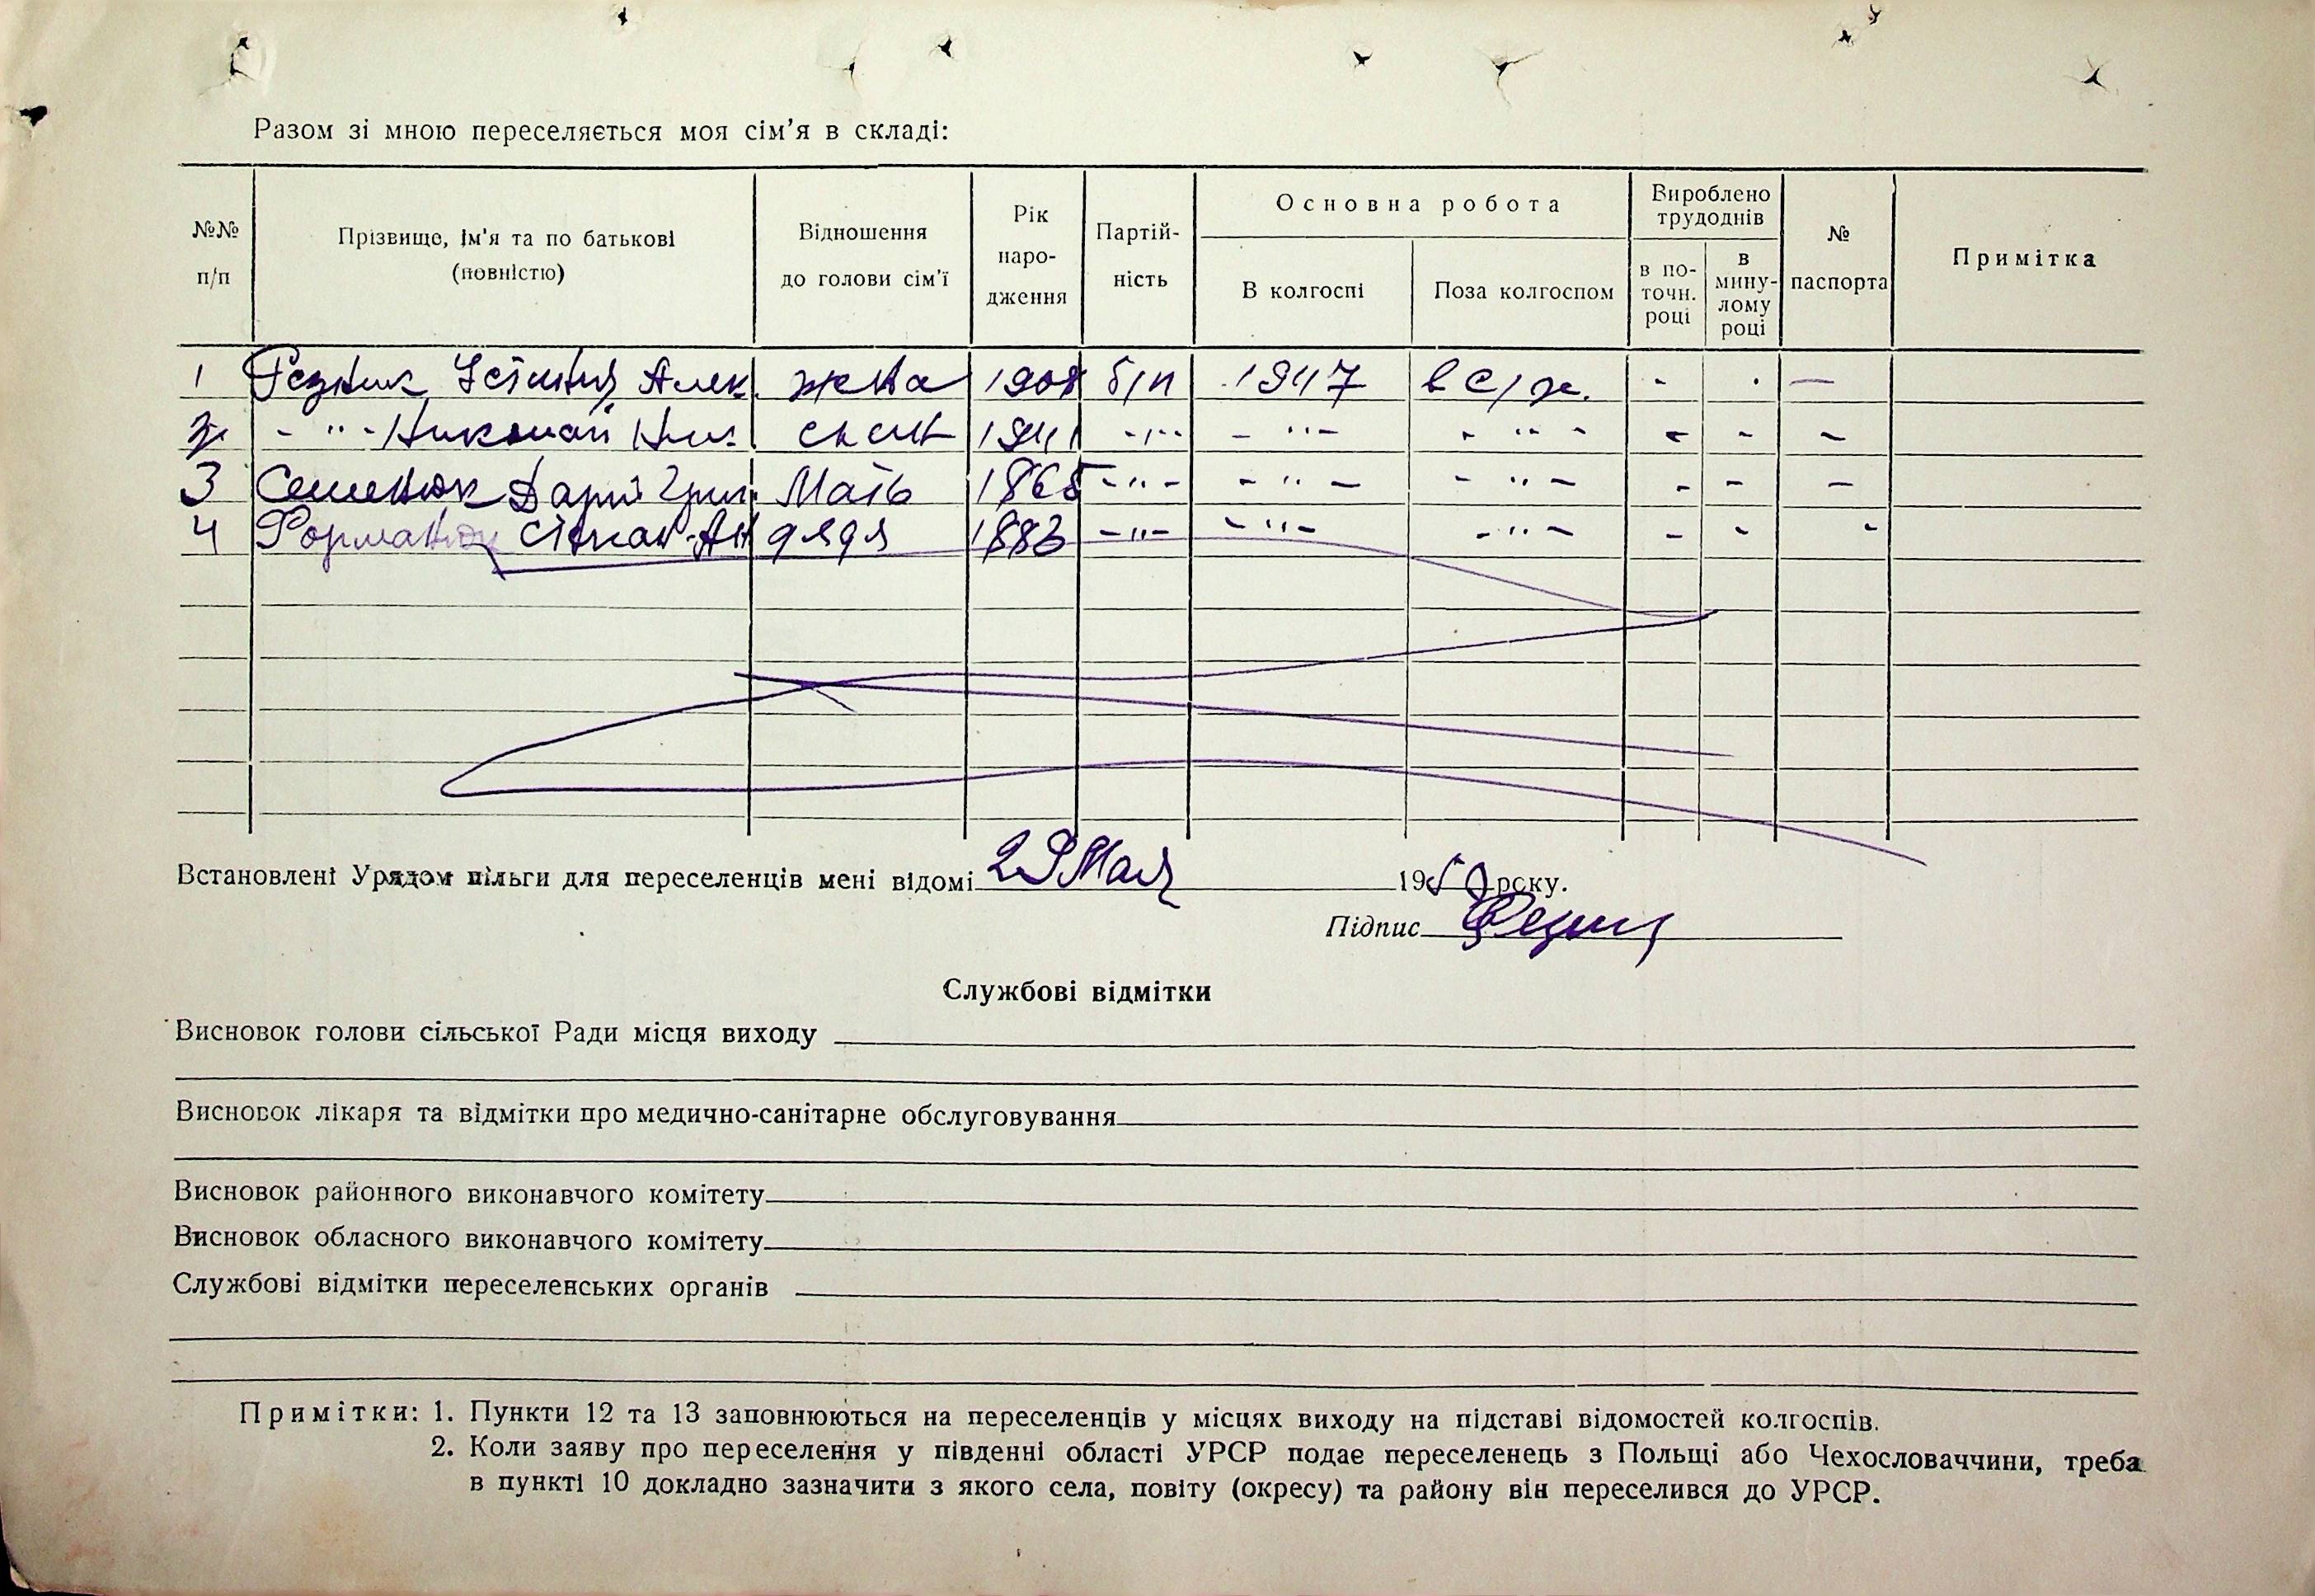 Разом зі мною переселяється моя сім'я в складі:
№№ п/п
Прізвище, ім'я та по батькові (повністю)
Відношення до голови сім'ї
Рік народження
Партійність
Основна робота
В колгоспі
Поза колгоспом
Вироблено трудоднів
в поточн. році
в минулому році
№ паспорта
Примітка
1 Резник Устиния Алек. жена 1908 б/п 1947 в с/х. - - -
2 - " - Николай Ник. сын 1941 - " - - " - - " - - - -
3 Семенюк Дария Григ. Мать 1865 - " - - " - - " - - - -
4 Форманюк Степан Ан дядя 1883 - " - - " - - " - - - -
Встановлені Урядом пільги для переселенців мені відомі 29 Мая 1950 року.
Підпис
Службові відмітки
Висновок голови сільської Ради місця виходу
Висновок лікаря та відмітки про медично-санітарне обслуговування
Висновок районного виконавчого комітету
Висновок обласного виконавчого комітету
Службові відмітки переселенських органів
Примітки: 1. Пункти 12 та 13 заповнюються на переселенців у місцях виходу на підставі відомостей колгоспів.
2. Коли заяву про переселення у південні області УРСР подає переселенець з Польщі або Чехословаччини, треба
в пункті 10 докладно зазначити з якого села, повіту (окресу) та району він переселився до УРСР.